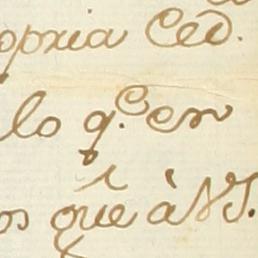 opria Ced.
lo q.e en
os que à VS.